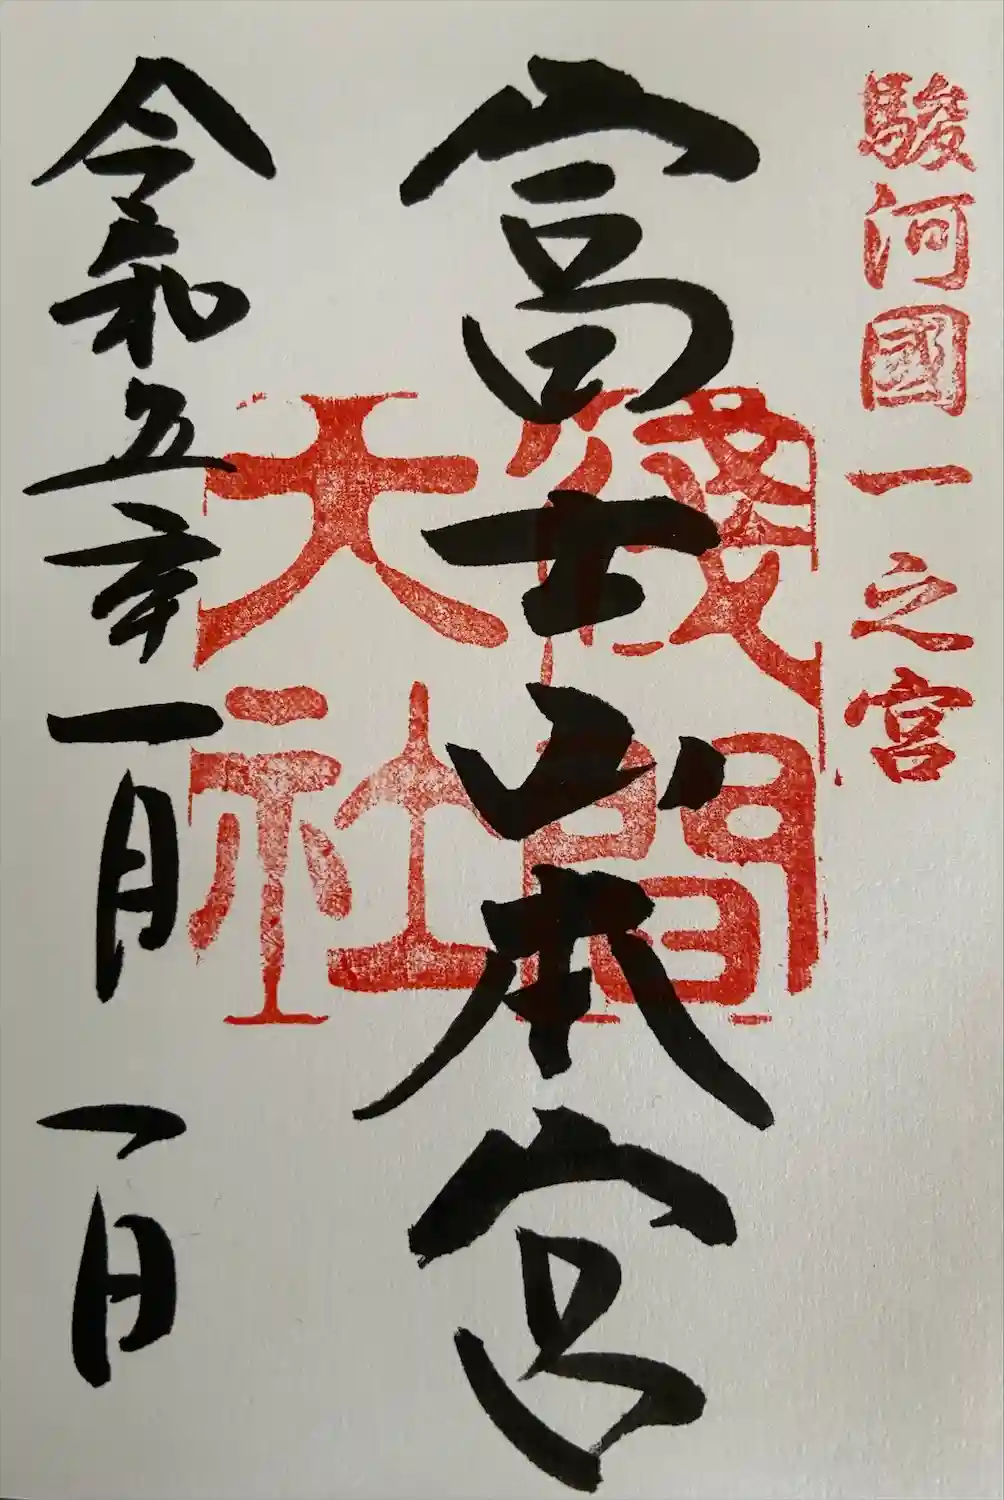 駿河國一之宮
富士山本宮
淺間大社
令和五年一月一日